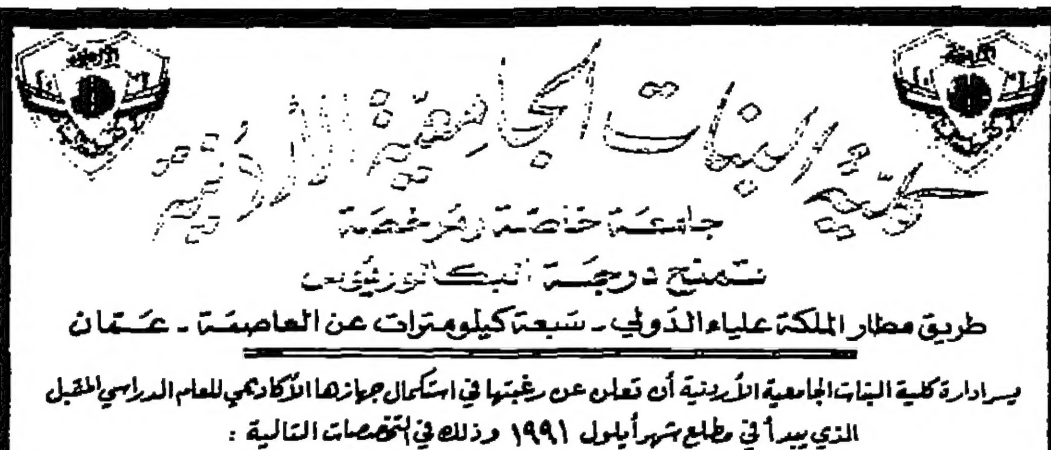 كلية البنات الجامعية الأردنية
جامعة خاصة ومرخصة
تمنح درجة البكالوريوس
طريق مطار الملكة علياء الدولي - سبعة كيلومترات عن العاصمة - عمان
يسر ادارة كلية البنات الجامعية الأردنية أن تعلن عن رغبتها في استكمال جهازها الأكاديمي للعام الدراسي المقبل
الذي يبدأ في مطلع شهر أيلول ١٩٩١ وذلك في التخصصات التالية :